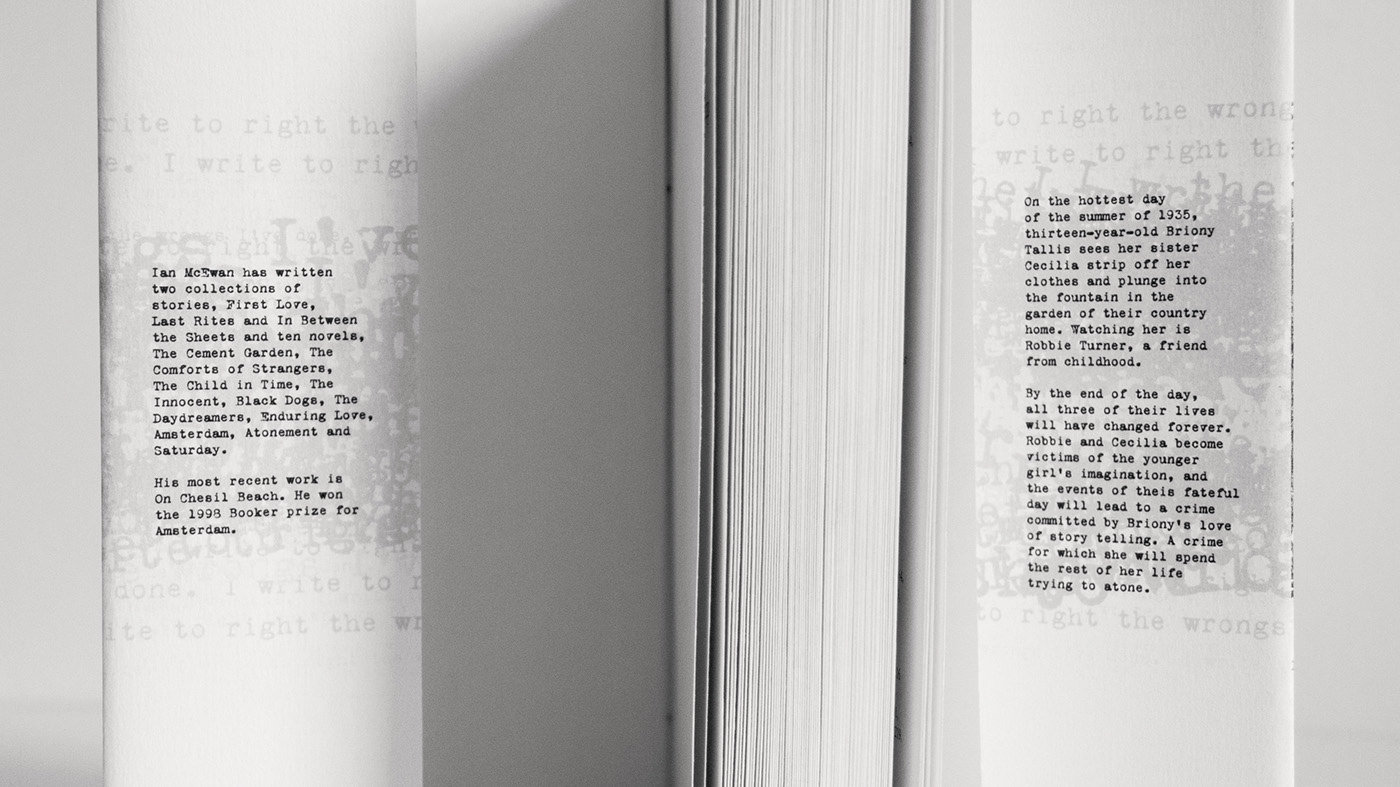 rite to right the
e. I write to righ
Ian McEwan has written
two collections of
stories, First Love,
Last Rites and In Between
the Sheets and ten novels,
The Cement Garden, The
Comforts of Strangers,
The Child in Time, The
Innocent, Black Dogs, The
Daydreamers, Enduring Love,
Amsterdam, Atonement and
Saturday.
His most recent work is
On Chesil Beach. He won
the 1998 Booker prize for
Amsterdam.
done. I write to r
ite to right the wr
to right the wrong
write to right th
On the hottest day
of the summer of 1935,
thirteen-year-old Briony
Tallis sees her sister
Cecilia strip off her
clothes and plunge into
the fountain in the
garden of their country
home. Watching her is
Robbie Turner, a friend
from childhood.
By the end of the day,
all three of their lives
will have changed forever.
Robbie and Cecilia become
victims of the younger
girl's imagination, and
the events of theis fateful
day will lead to a crime
committed by Briony's love
of story telling. A crime
for which she will spend
the rest of her life
trying to atone.
to right the wrongs